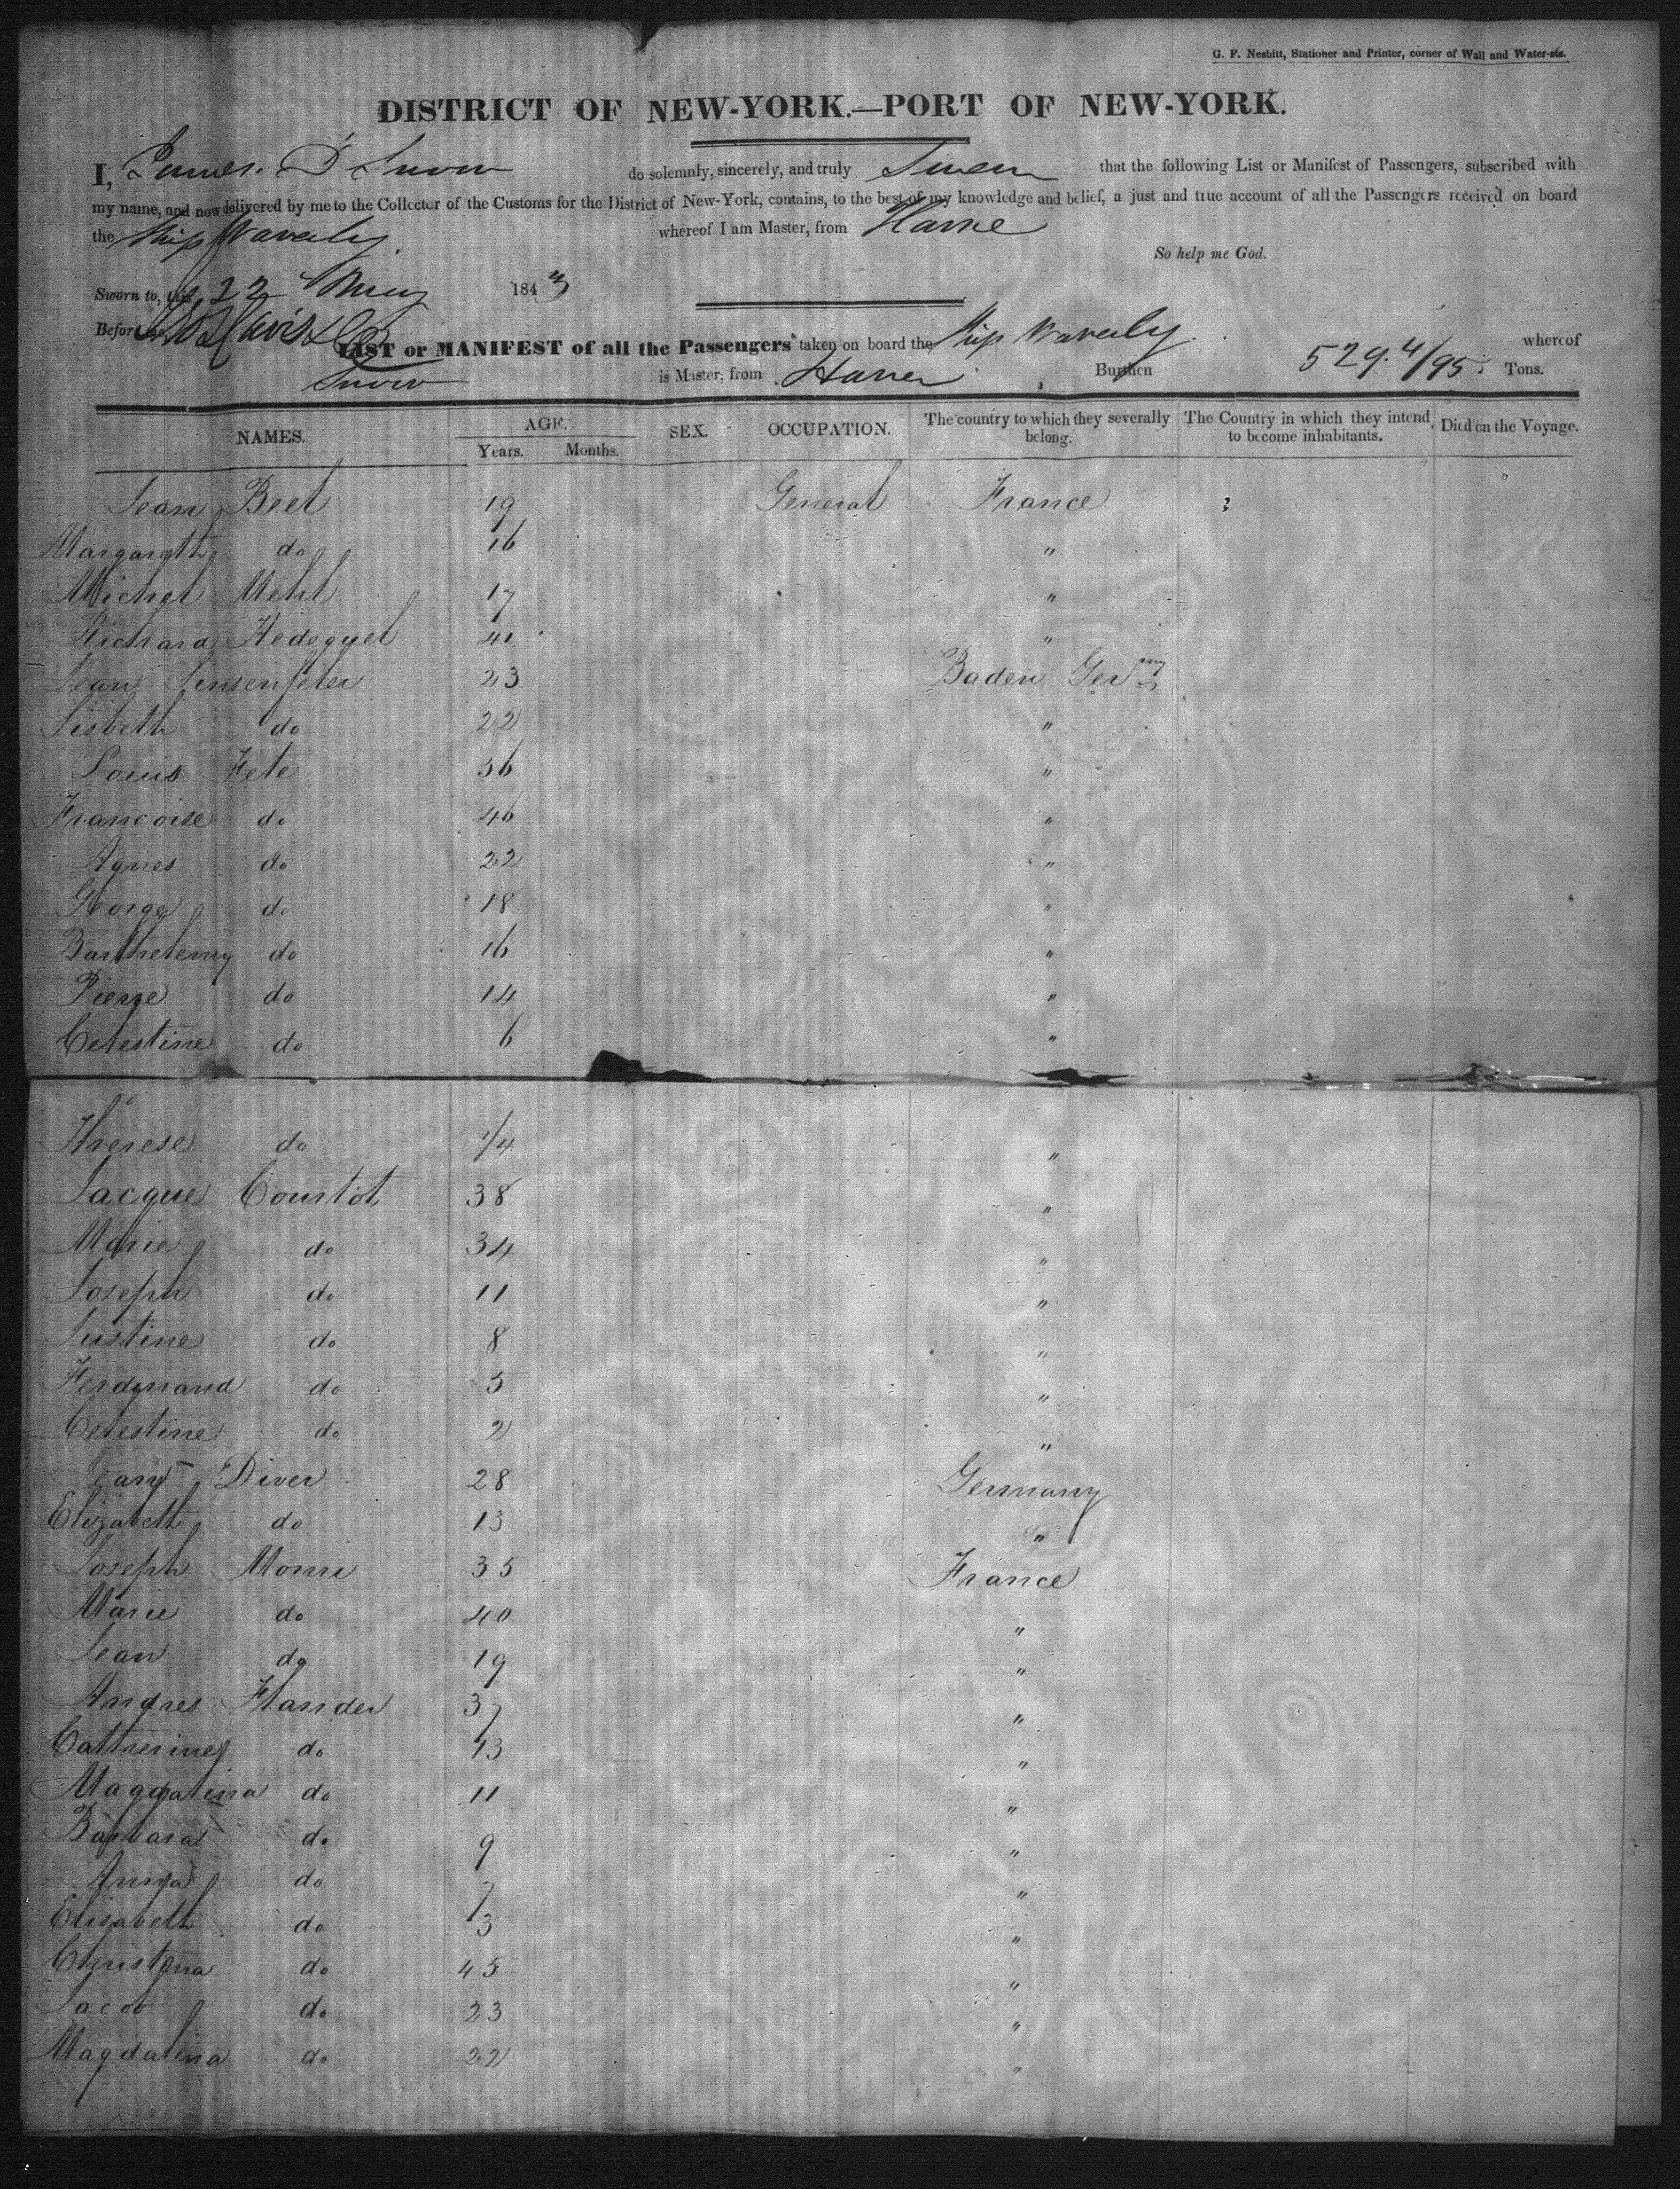 G. F. Nesbitt, Stationer and Printer, corner of Wall and Water-sts.
DISTRICT OF NEW-YORK.—PORT OF NEW-YORK.
I, James. D Snow do solemnly, sincerely, and truly Swear that the following List or Manifest of Passengers, subscribed with
my name, and now delivered by me to the Collector of the Customs for the District of New-York, contains, to the best of my knowledge and belief, a just and true account of all the Passengers received on board
the Ship Waverly. whereof I am Master, from Havre
So help me God.
Sworn to, this 22 May 1843
Before me
LIST or MANIFEST of all the Passengers taken on board the Ship Waverly. whereof
Snow is Master, from Havre Burthen 529. 4/95 Tons.
NAMES. AGE. SEX. OCCUPATION. The country to which they severally belong. The Country in which they intend to become inhabitants. Died on the Voyage.
Years. Months.
Jean Beel 19 General France
Margareth do 16 "
Michel Mehl 17 "
Richard 40 "
Jean Linsenfeler 23 Baden Ger my
Lisbeth do 22 "
Louis Fete 56 "
Francoise do 46 "
Agnes do 22 "
George do 18 "
Barthelemy do 16 "
Pierre do 14 "
Celestine do 6 "
Therese do 1/4 "
Jacque Courtot 38 "
Marie do 34 "
Joseph do 11 "
Justine do 8 "
Ferdinand do 5 "
Celestine do 2 "
Jean Diver 28 Germany
Elizabeth do 13 "
Joseph Morri 35 France
Marie do 40 "
Jean do 19 "
Andres Flander 37 "
Catherine do 13 "
Magdalena do 11 "
Barbara do 9 "
Anna do 7 "
Elisabeth do 3 "
Christina do 45 "
Jacob do 23 "
Magdalina do 22 "